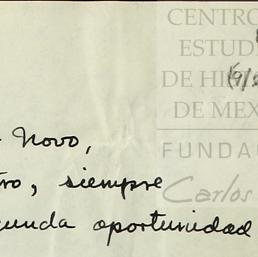 CENTRO
ESTUDI
DE HI
DE MEX
FUNDA
Carlos
Novo,
ro, siempre
unda oportunidad